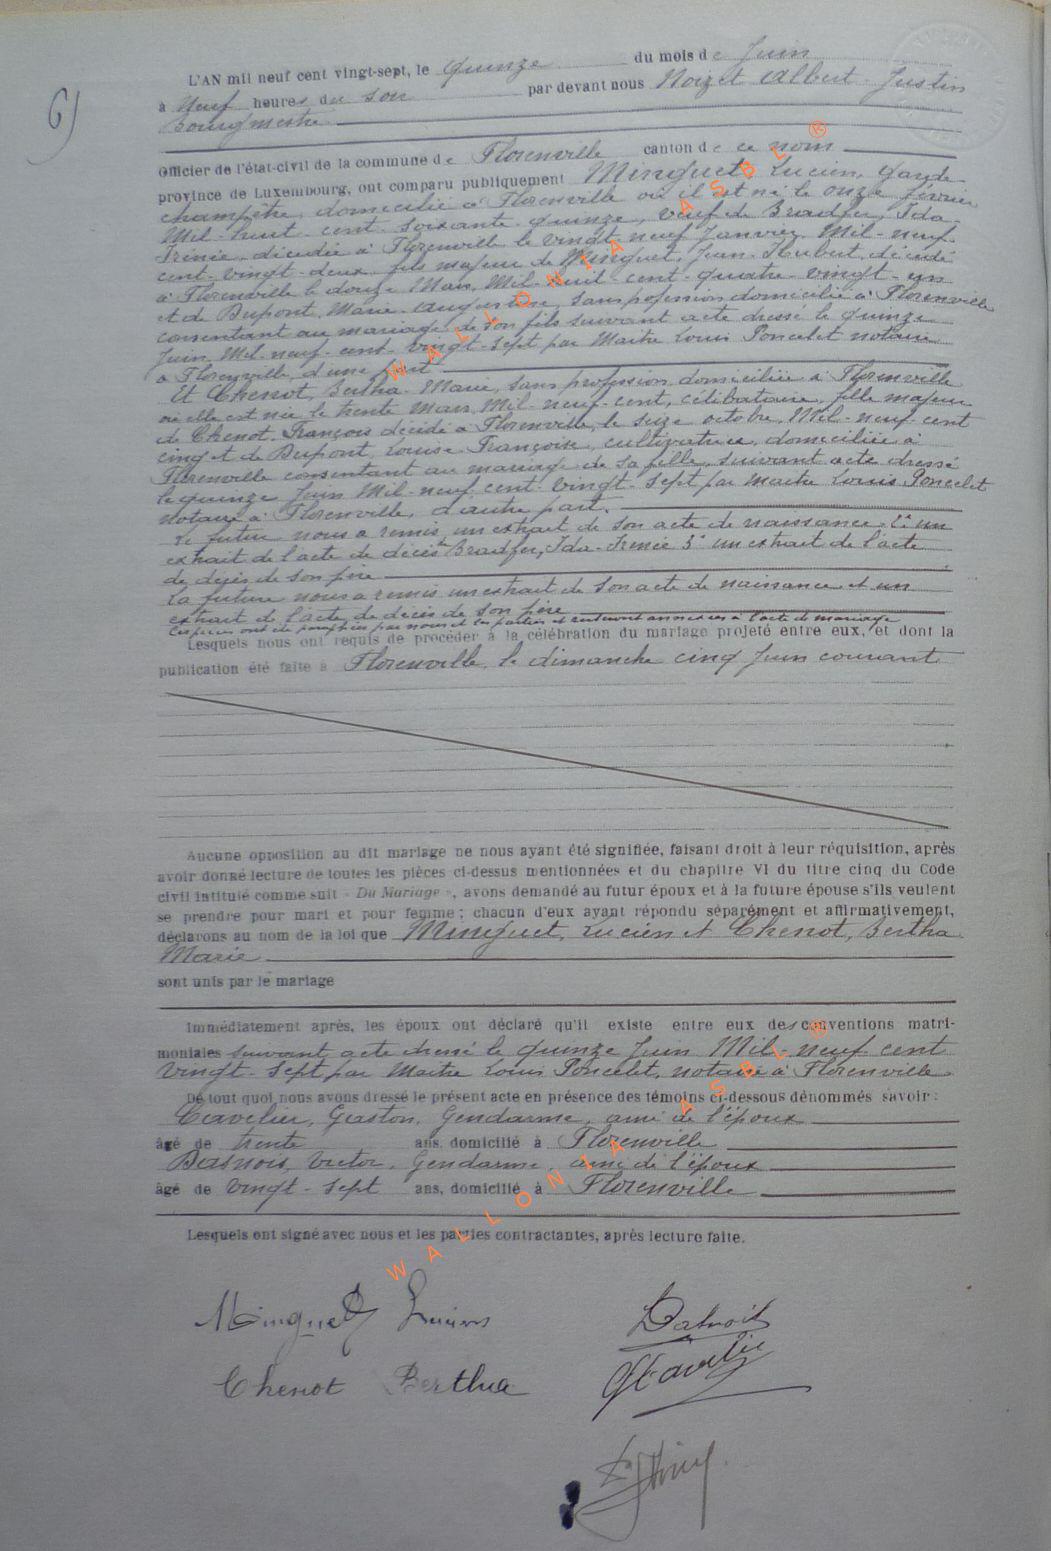 6)
L'AN mil neuf cent vingt-sept, le quinze du mois de Juin
à neuf heures du soir par devant nous Noizet Albert Justin
Bourgmestre
Officier de l'état-civil de la commune de Florenville canton de ce nom
province de Luxembourg, ont comparu publiquement Minguet, Lucien, garde
champêtre, domicilié à Florenville où il est né le onze février
Mil-huit-cent-soixante-quinze, veuf de Bradfer, Ida-
Irénée, décédée à Florenville le vingt-neuf Janvier Mil-neuf-
cent-vingt-deux, fils majeur de Minguet, Jean-Hubert, décédé
à Florenville le douze Mars Mil-huit-cent-quatre-vingt-un
et de Dupont, Marie-Augustine, sans profession domiciliée à Florenville
consentant au mariage de son fils suivant acte dressé le quinze
Juin Mil-neuf-cent-vingt-sept par Maître Louis Poncelet notaire
à Florenville, d'une part
Et Chenot, Bertha-Marie, sans profession, domiciliée à Florenville
où elle est née le trente Mars Mil-neuf-cent, célibataire, fille majeure
de Chenot, François décédé à Florenville, le seize octobre Mil-neuf-cent
cinq et de Dupont, Louise Françoise, cultivatrice, domiciliée à
Florenville consentant au mariage de sa fille, suivant acte dressé
le quinze Juin Mil-neuf-cent-vingt-sept par Maître Louis Poncelet
notaire à Florenville, d'autre part.
Le futur nous a remis un extrait de son acte de naissance 2° un
extrait de l'acte de décès Bradfer, Ida-Irénée 3° un extrait de l'acte
de décès de son père
La future nous a remis un extrait de son acte de naissance et un
extrait de l'acte de décès de son père
Ces pièces ont été paraphées par nous et les parties et resteront annexées à l'acte de mariage
Lesquels nous ont requis de procéder à la célébration du mariage projeté entre eux, et dont la
publication été faite à Florenville, le dimanche cinq Juin courant
Aucune opposition au dit mariage ne nous ayant été signifiée, faisant droit à leur réquisition, après
avoir donné lecture de toutes les pièces ci-dessus mentionnées et du chapitre VI du titre cinq du Code
civil intitulé comme suit « Du Mariage », avons demandé au futur époux et à la future épouse s'ils veulent
se prendre pour mari et pour femme ; chacun d'eux ayant répondu séparément et affirmativement,
déclarons au nom de la loi que Minguet, Lucien et Chenot, Bertha
Marie
sont unis par le mariage
Immédiatement après, les époux ont déclaré qu'il existe entre eux des conventions matri-
moniales suivant acte dressé le quinze Juin Mil-neuf cent
vingt-sept par Maître Louis Poncelet, notaire à Florenville
De tout quoi nous avons dressé le présent acte en présence des témoins ci-dessous dénommés savoir :
Cavelier, Gaston, Gendarme, ami de l'époux
âgé de trente ans, domicilié à Florenville
Victor, Gendarme, ami de l'époux
âgé de vingt-sept ans, domicilié à Florenville
Lesquels ont signé avec nous et les parties contractantes, après lecture faite.
Minguet Lucien
Chenot Bertha
WALLONIA ASBL ®
WALLONIA ASBL ®